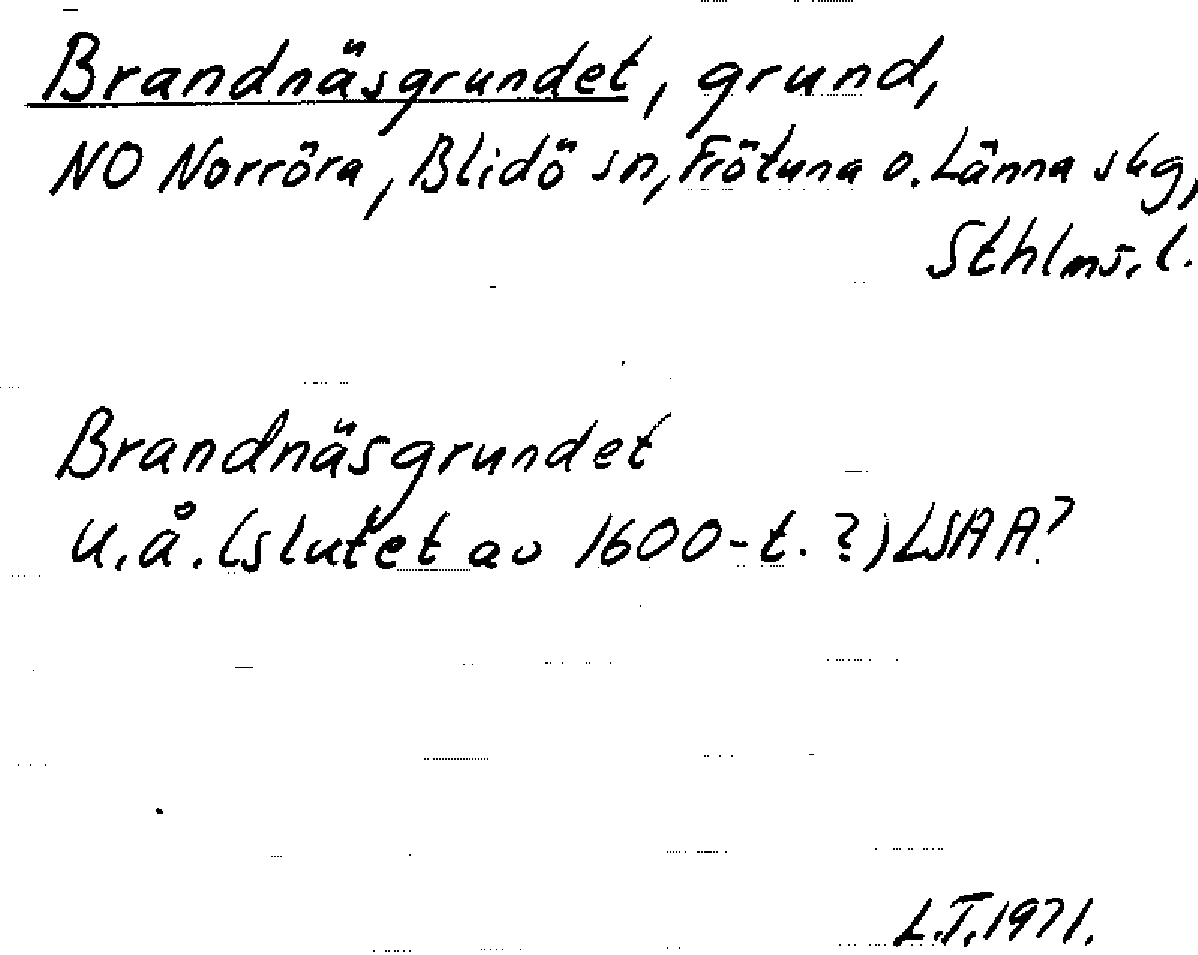 Brandnäsgrundet, grund,
NO Norröra, Blidö sn, Frötuna o. Länna skg,
Sthlms. l.
Brandnäsgrundet
u.å. (slutet av 1600-t. ?) LSAA?
L.T. 1971.